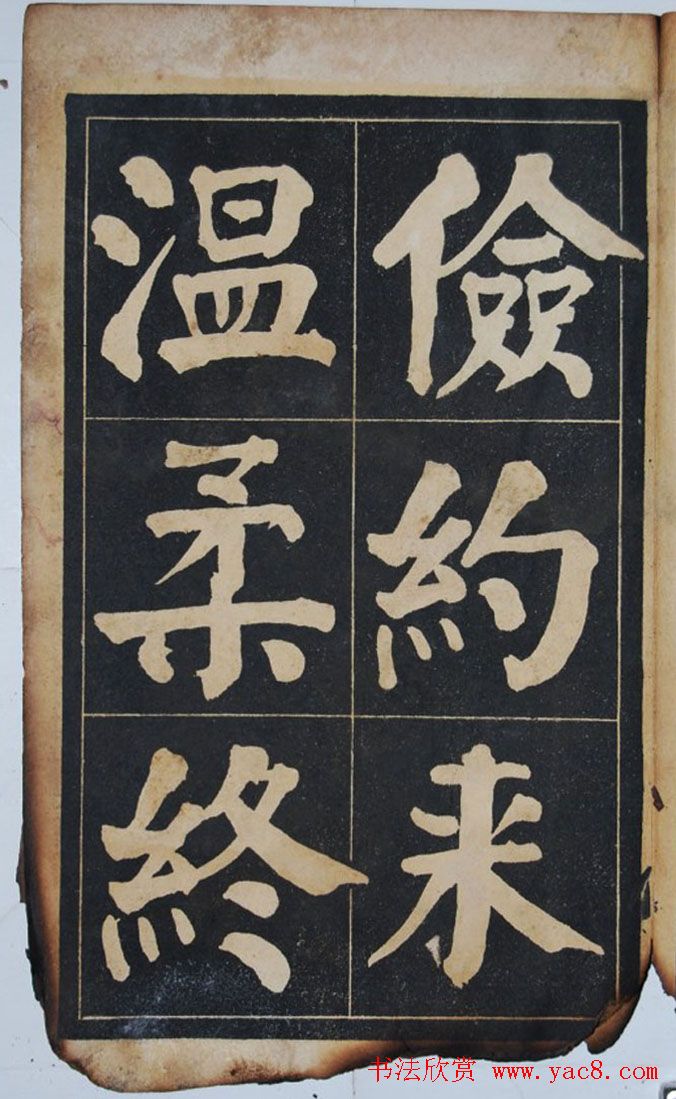 儉約来
温柔終
书法欣赏 www.yac8.com